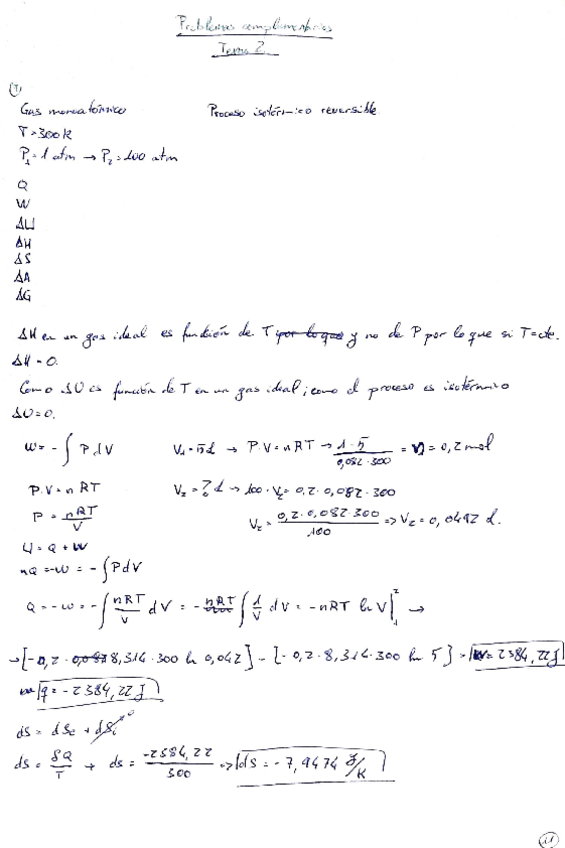 Problemas complementarios
Tema 2.
(1)
Gas monoatómico Proceso isotérmico reversible.
T=300K
P₁=1 atm → P₂=100 atm
Q
W
ΔU
ΔH
ΔS
ΔA
ΔG
ΔH en un gas ideal es función de T por lo que y no de P por lo que si T=cte.
ΔH=0.
Como ΔU es función de T en un gas ideal, como el proceso es isotérmico
ΔU=0.
W=-∫PdV V₁=5L → P·V=nRT → 1·5/0,082·300 = n=0,2mol
P·V=nRT V₂=? → 100·V₂=0,2·0,082·300
P=nRT/V V₂=0,2·0,082·300/100 => V₂=0,0492 L.
U=Q+W
Q=-W=-∫PdV
Q=-W=-∫nRT/V dV = -nRT∫1/V dV = -nRT ln V|²₁ →
→[-0,2·8,314·300 ln 0,042]-[-0,2·8,314·300 ln 5] → W=2384,22J
q=-2384,22J
dS=dSe+dSi
dS=δQ/T → dS=-2384,22/300 => dS=-7,9474 J/K